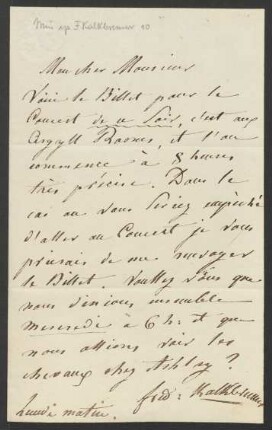 Mon cher Monsieur
Voici le Billet pour le
Concert de ce Soir, c'est aux
Argyll Rooms, et l'on
commence à 8 heures
très précise. Dans le
cas ou vous seriez empêché
d'aller au Concert je vous
prierais de me renvoyer
le Billet. Voullez Vous que
nous dinions ensemble
mercredi à 6 h: et que
nous allions voir les
chevaux chez Ashley?
fréd: Kalkbrenner
Lundi matin.